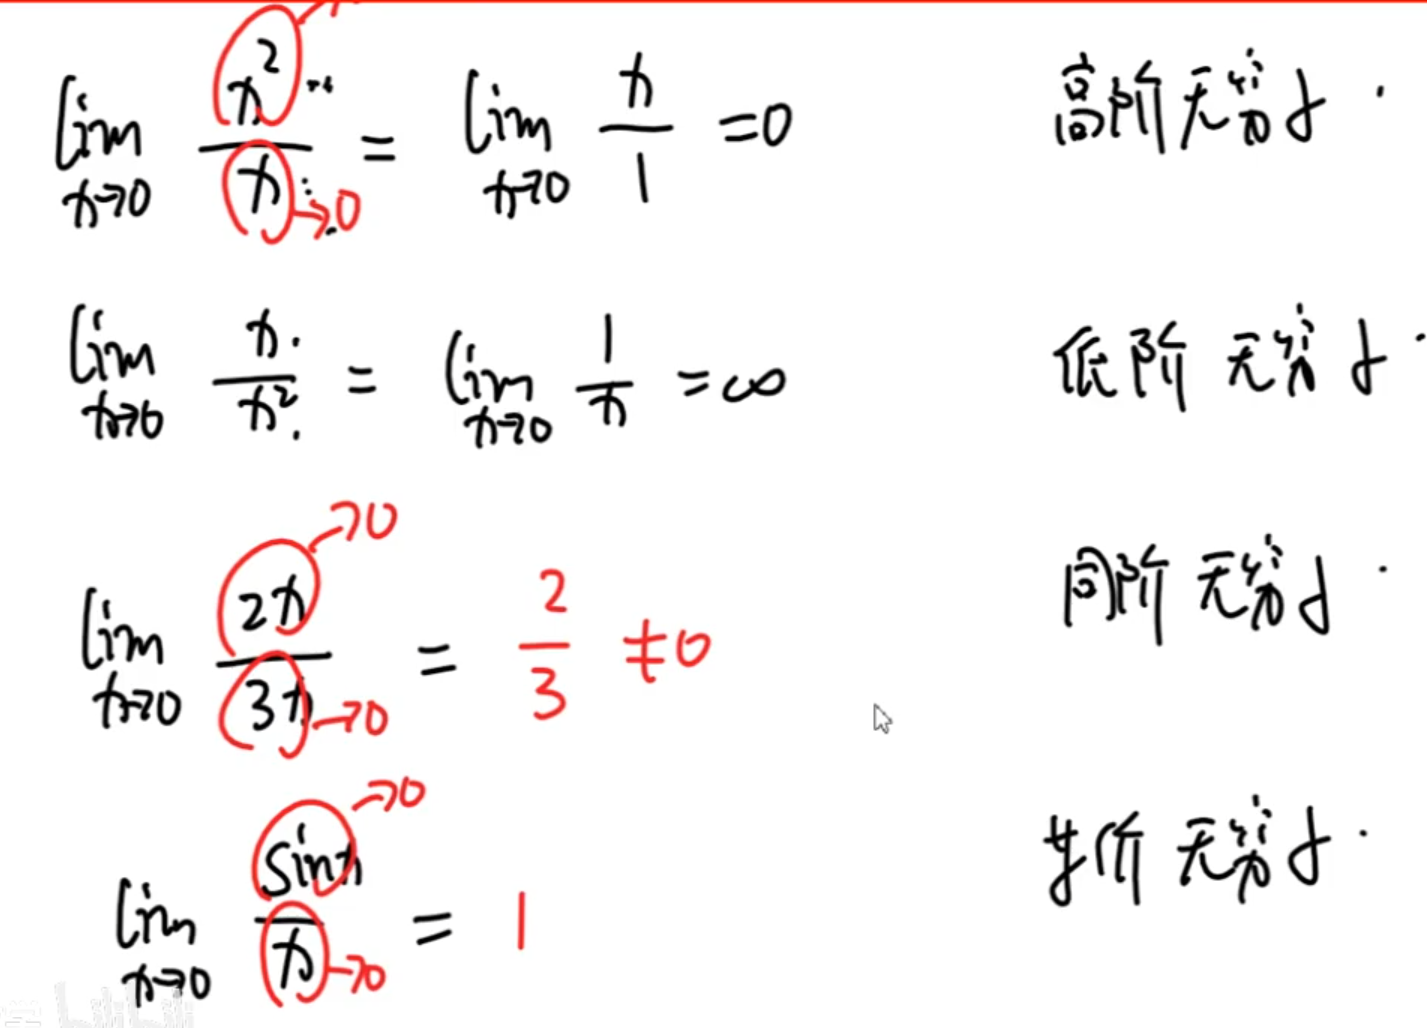 lim x→0 x²/x = lim x→0 x/1 = 0 高阶无穷小.
→0
lim x→0 x/x² = lim x→0 1/x = ∞ 低阶无穷小.
→0
lim x→0 2x/3x = 2/3 ≠0 同阶无穷小.
→0
→0
lim x→0 sinx/x = 1 等价无穷小.
→0